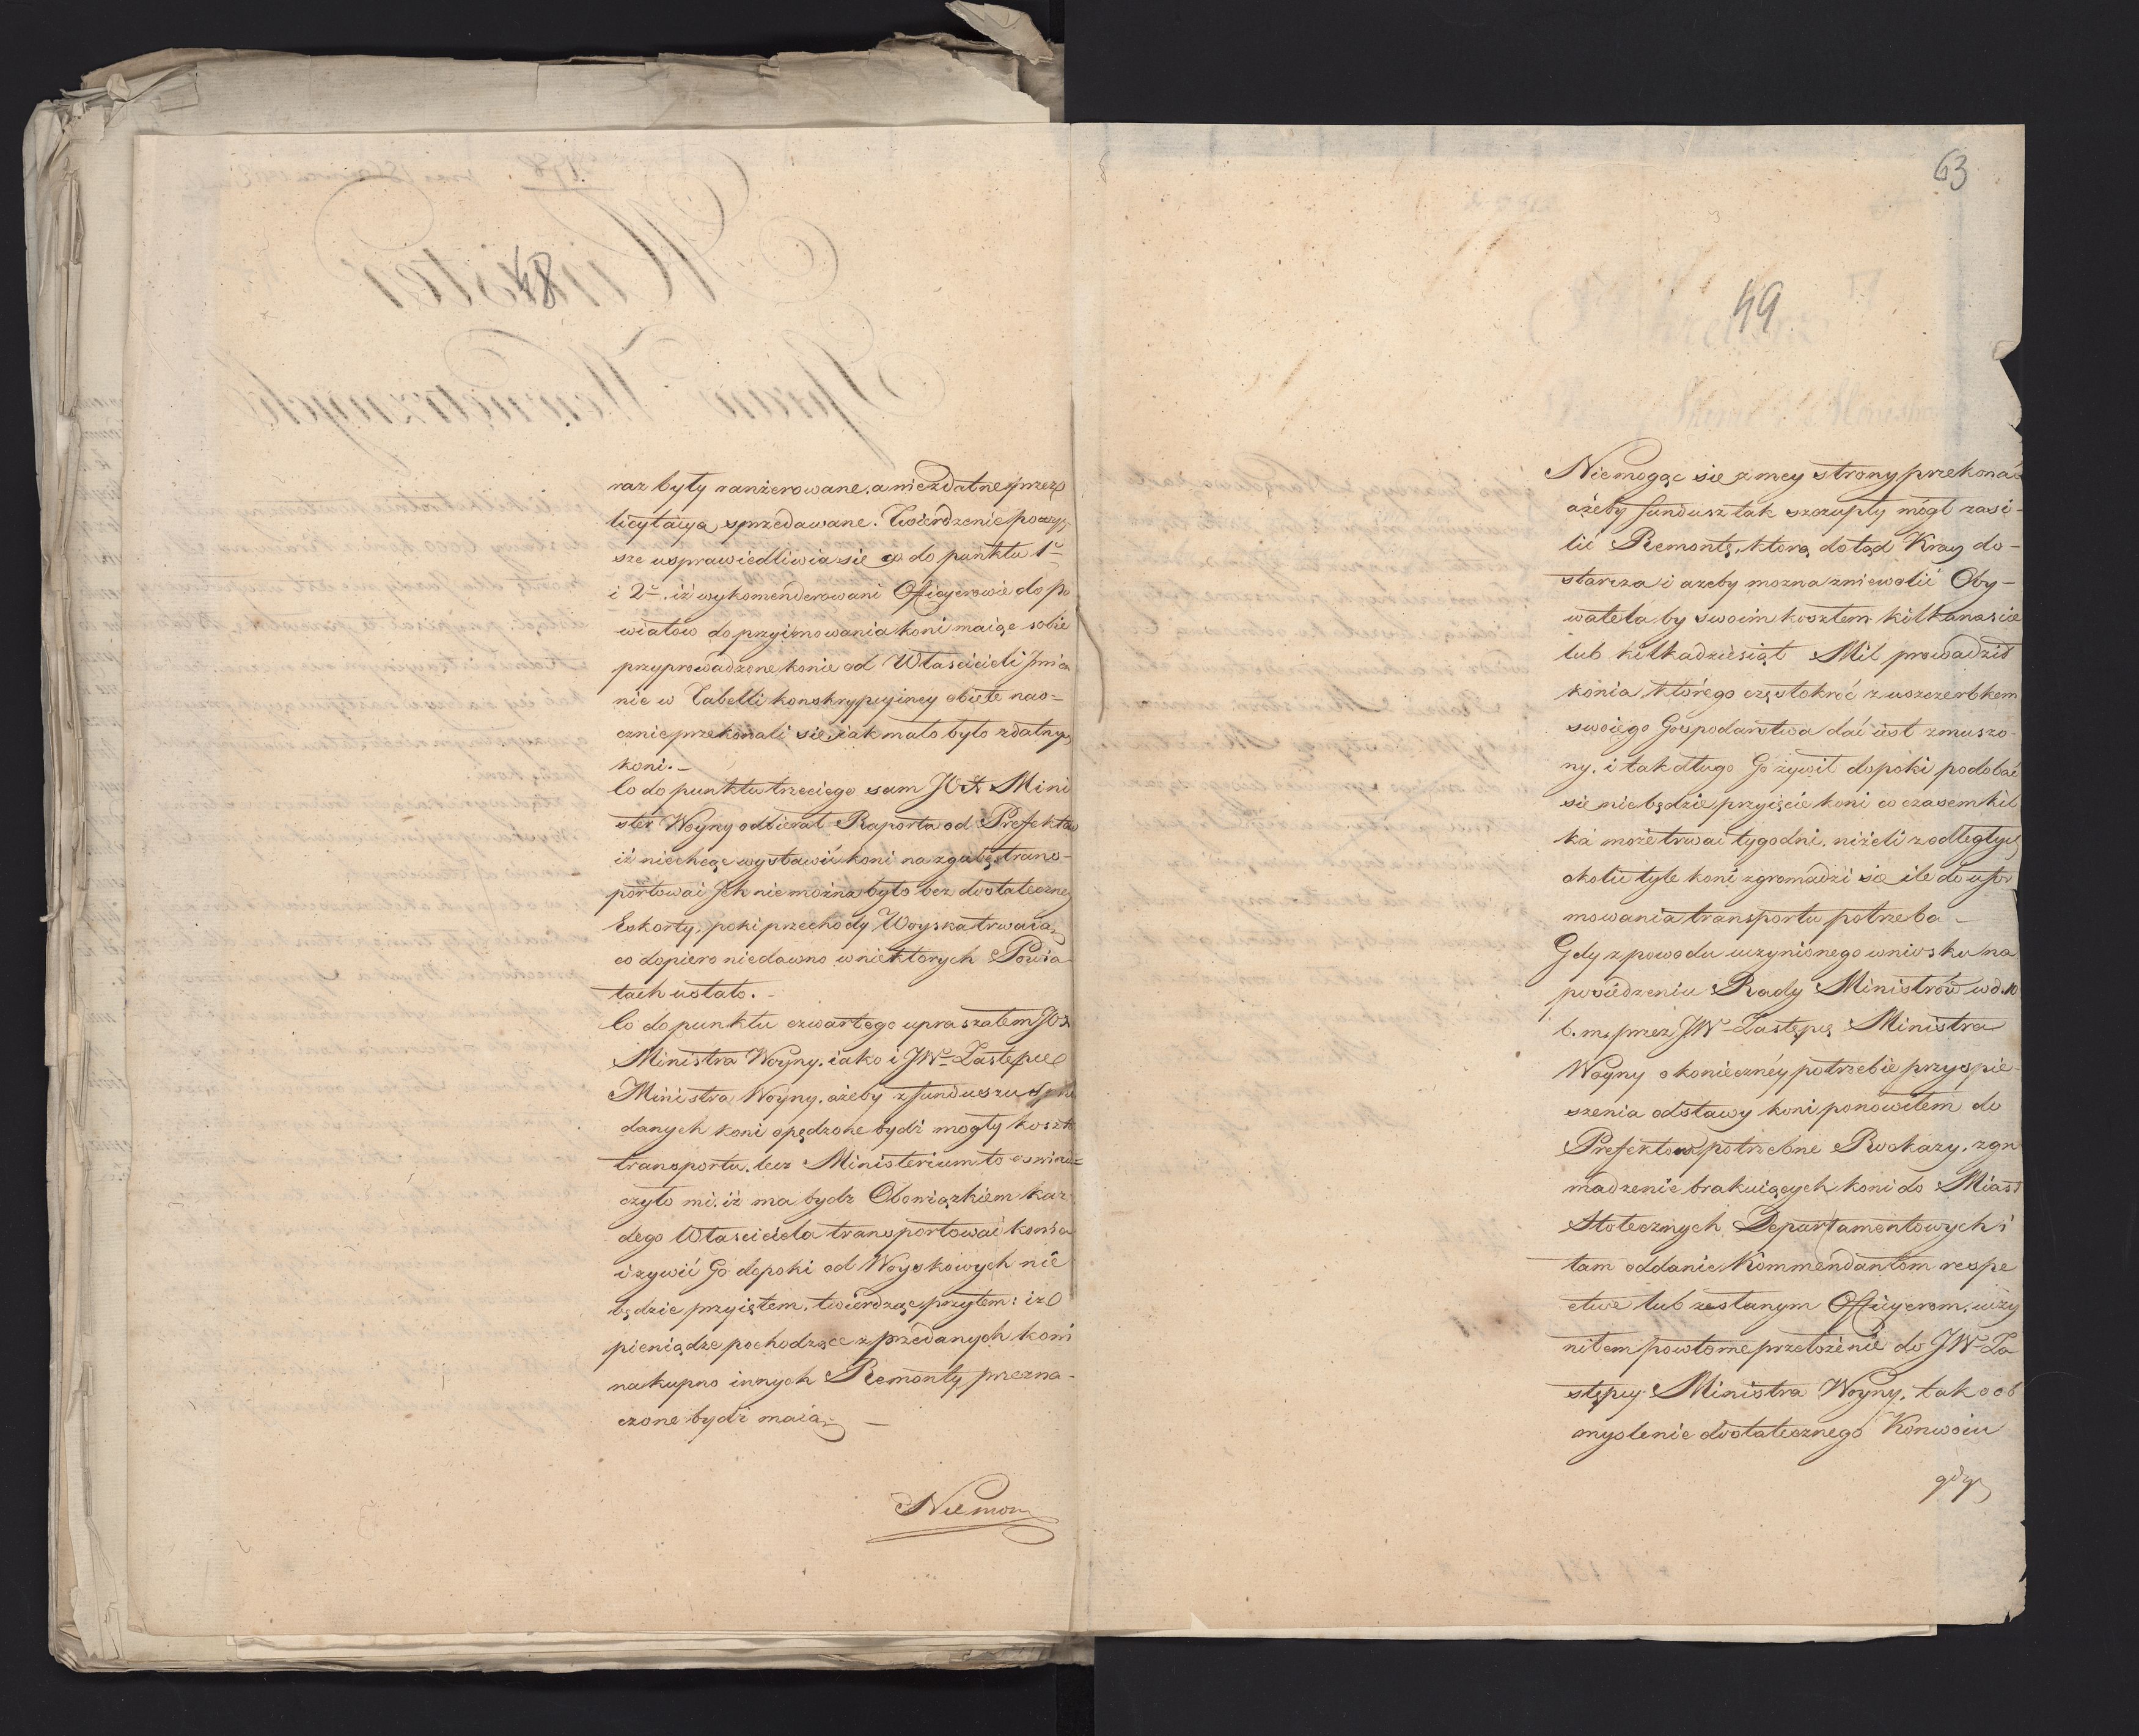 48
raz były ranżerowane, a niezdatne przez
licytacyą sprzedawane. Twierdzenie powyż
sze usprawiedliwia się co do punktu 1º
i 2º. iż wykomenderowani Officyerowie do po
wiatow do przyimowania koni maiąc sobie
przyprowadzone konie od Właścicieli Jmien
nie w Tabelli konskrypcyiney obięte nao-
cznie przekonali się, iak mało było zdatnych
koni. -
Co do punktu trzeciego sam JOX Mini
ster Woyny odbierał Raporta od Prefektow
iż niechcąc wystawić koni na zgubę trans-
portować Jch nie można było bez dostateczney
Eskorty, poki przechody Woyska trwaią,
co dopiero niedawno w niektorych Powia
tach ustało. -
Co do punktu czwartego upraszałem JOX
Ministra Woyny, iako i JWº Zastępcę
Ministra Woyny, ażeby z funduszu sprze
danych koni opędzone bydź mogły koszta
transportu, lecz Ministerium to oswiad=
czyło mi, iż ma bydz Obowiązkiem każ
dego Właściciela transportować konia
i żywić Go dopoki od Woyskowych nie
będzie przyiętem, twierdząc przytem: iż
pieniądze pochodzące z przedanych koni
na kupno innych Remonty przezna-
czone bydź maią. —
Niemog
63
49
Niemogąc się z mey strony przekonać
ażeby fundusz tak szczupły mógł zasi-
lić Remontę, ktorą dotąd Kray do-
starcza i azeby mozna zniewolić Oby-
watela by swoim kosztem kilkanascie
lub kilkadziesiąt Mil prowadził
konia którego częstokroć z uszczerbkiem
swoiego Gospodarstwa dać iest zmuszo
ny, i tak długo Go żywił dopoki podobać
się nie będzie przyięcie koni co czasem kil
ka może trwać tygodni, niżeli z odległych
okolic tyle koni zgromadzi się ile do ufor
mowania transportu potrzeba -
Gdy z powodu uczynionego wniosku na
posiedzeniu Rady Ministrów w d. 10
b. m. przez JWº Zastępcę Ministra
Woyny o konieczney potrzebie przyspie-
szenia odstawy koni ponowiłem do
Prefektow potrzebne Rozkazy, zgro
madzenie brakuiących koni do Miast
Stołecznych Departamentowych i
tam oddanie Kommendantom respe
ctive lub zesłanym Officyerom, uczy
niłem powtorne przełożenie do JWº Za
stępcy Ministra Woyny, tak o ob
myslenie dostatecznego Konwoiu
gdyż